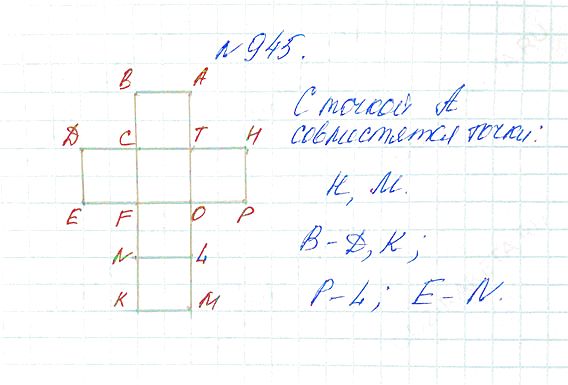 № 945.
B A
С точкой A
совместятся точки:
D C T H
H, M.
E F O P
B - D, K;
N L
P - L; E - N.
K M